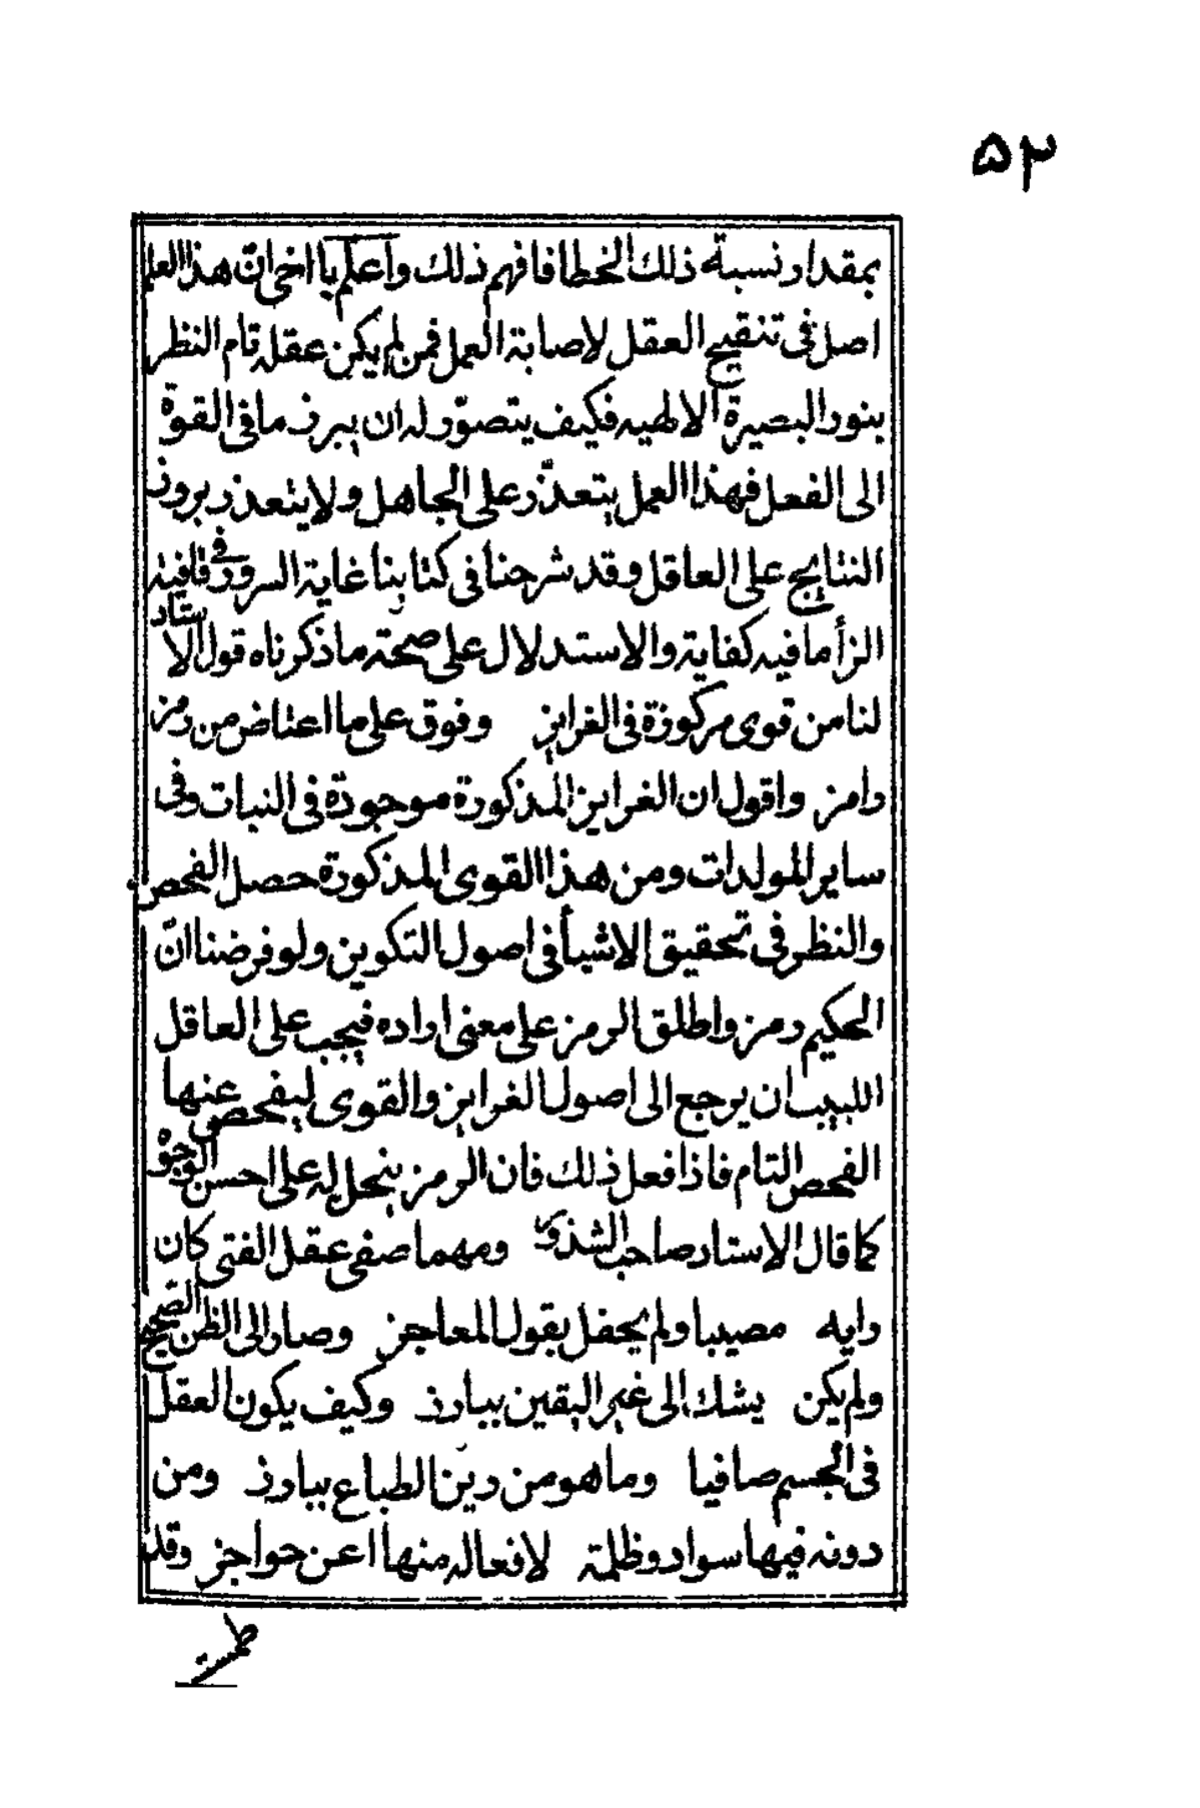 ٥٣
بمقدار نسبة ذلك الخطا فافهم ذلك واعلم يا اخى انّ هذا العلم
اصل فى تنقيح العقل لاصابة العمل فمن لم يكن عقله تام النظر
بنور البصيرة الالهيه فكيف يتصوّر له ان يبرز ما فى القوة
الى الفعل فهذا العمل يتعذّر على الجاهل ولا يتعذر بروز
النتايج على العاقل وقد شرحنا فى كتابنا غاية السرور فى قافية
الزأ ما فيه كفاية والاستدلال على صحة ما ذكرناه قول الاستاد
لنا من قوى مركوزة فى الغرايز وفوق على ما اعتاض من رمز
رامز واقول ان الغرايز المذكورة موجودة فى النبات وفى
ساير المولدات ومن هذا القوى المذكورة حصل الفحص
والنظر فى تحقيق الاشيأ فى اصول التكوين ولو فرضنا انّ
الحكيم رمز واطلق الرمز على معنى اراده فيجب على العاقل
اللبيب ان يرجع الى اصول الغرايز والقوى ليفحص عنها
الفحص التام فاذا فعل ذلك فان الرمز ينحل له على احسن الوجوه
كما قال الاستاد صاحب الشذور ومهما صفى عقل الفتى كان
رايه مصيبا ولم يحفل بقول المعاجز وصار الى الظن الصحيح
ولم يكن يشك الى غير اليقين ببارز وكيف يكون العقل
فى الجسم صافيا وما هو من رين الطباع ببارز ومن
دونه فيها سواد وظلمة لافعاله منها اعن حواجز وقد
طمست